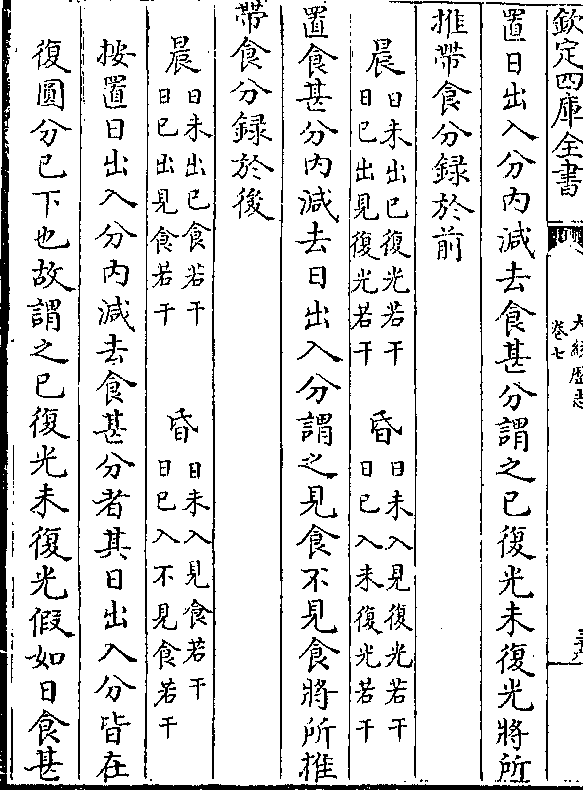 欽定四庫全書
卷七
置日出入分内減去食甚分謂之已復光未復光將所
推帶食分録於前
晨 日未出已復光若干 昏 日未入見復光若干
日已出見復光若干 日已入未復光若干
置食甚分内減去日出入分謂之見食不見食將所推
帶食分録於後
晨 日未出已食若干 昏 日未入見食若干
日已出見食若干 日已入不見食若干
按置日出入分内減去食甚分者其日出入分皆在
復圓分已下也故謂之已復光未復光假如日食甚